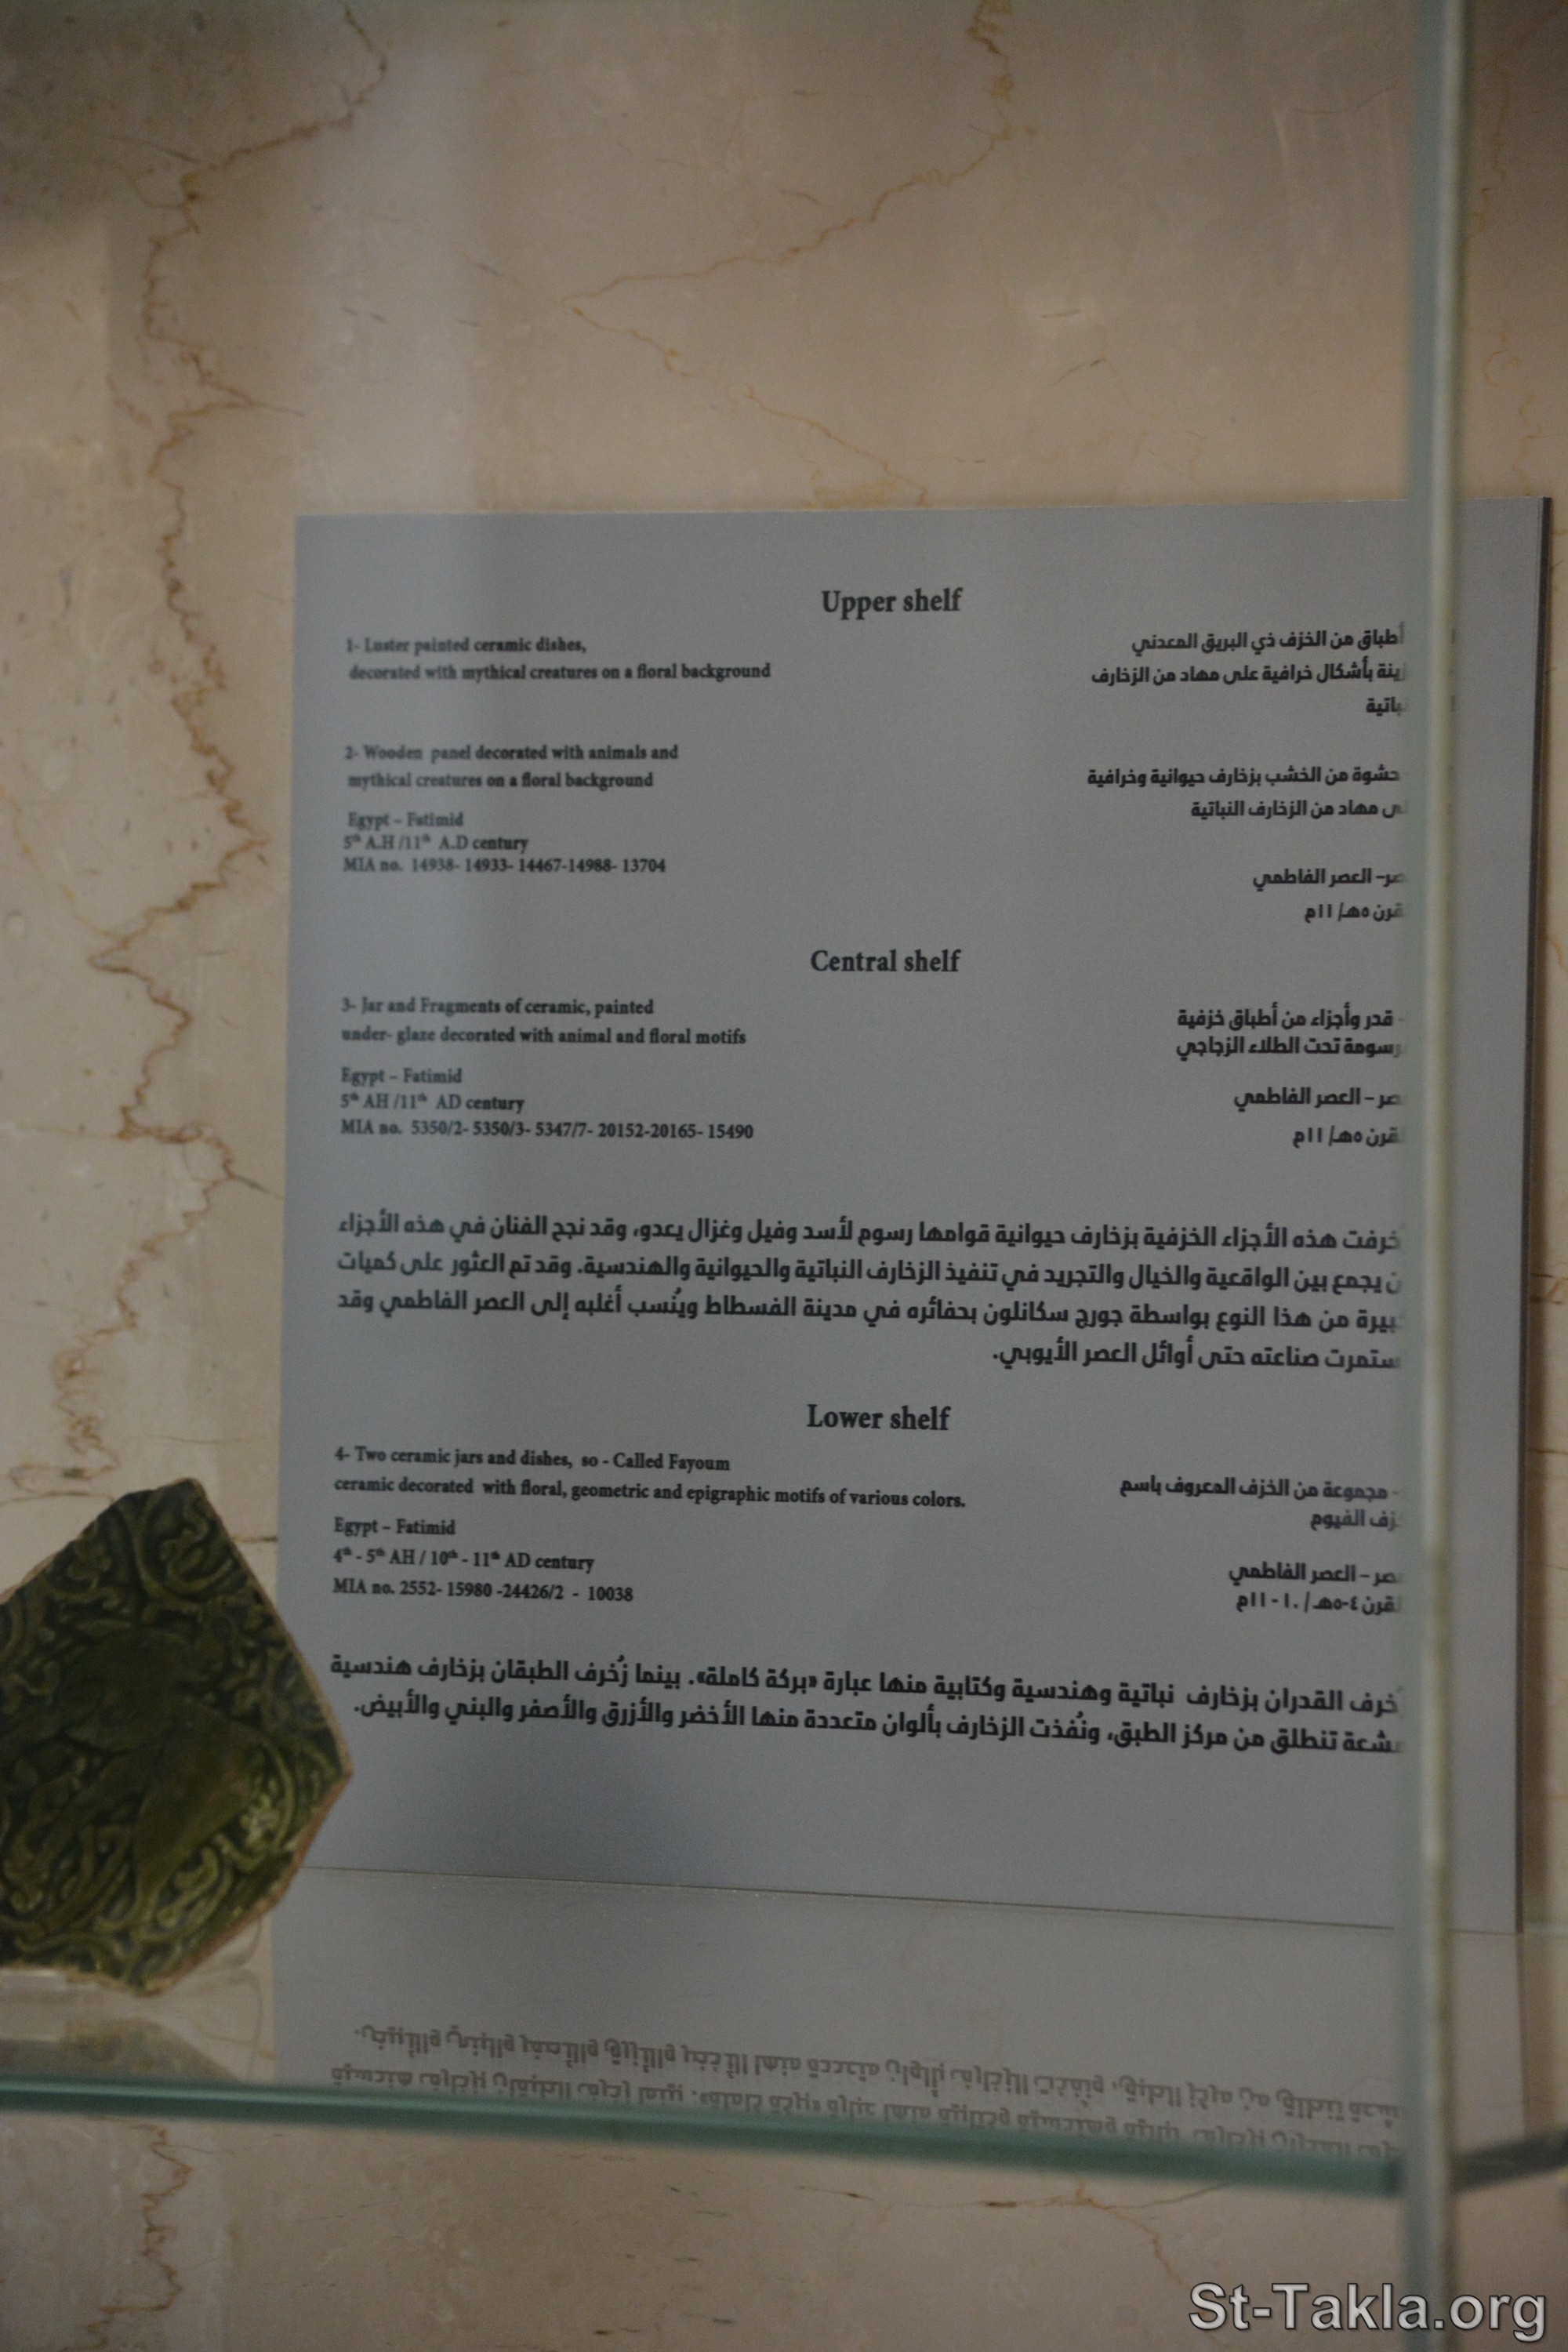 Upper shelf
1- Luster painted ceramic dishes,
decorated with mythical creatures on a floral background
أطباق من الخزف ذي البريق المعدني
بأشكال خرافية على مهاد من الزخارف
2- Wooden panel decorated with animals and
mythical creatures on a floral background
حشوة من الخشب بزخارف حيوانية وخرافية
مهاد من الزخارف النباتية
Egypt – Fatimid
5th A.H /11th A.D century
MIA no. 14938- 14933- 14467-14988- 13704
العصر الفاطمي
٥هـ/ ١١م
Central shelf
3- Jar and Fragments of ceramic, painted
under- glaze decorated with animal and floral motifs
- قدر وأجزاء من أطباق خزفية
تحت الطلاء الزجاجي
Egypt – Fatimid
5th AH /11th AD century
MIA no. 5350/2- 5350/3- 5347/7- 20152-20165- 15490
– العصر الفاطمي
٥هـ/ ١١م
هذه الأجزاء الخزفية بزخارف حيوانية قوامها رسوم لأسد وفيل وغزال يعدو، وقد نجح الفنان في هذه الأجزاء
يجمع بين الواقعية والخيال والتجريد في تنفيذ الزخارف النباتية والحيوانية والهندسية. وقد تم العثور على كميات
من هذا النوع بواسطة جورج سكانلون بحفائره في مدينة الفسطاط ويُنسب أغلبه إلى العصر الفاطمي وقد
صناعته حتى أوائل العصر الأيوبي.
Lower shelf
4- Two ceramic jars and dishes, so - Called Fayoum
ceramic decorated with floral, geometric and epigraphic motifs of various colors.
- مجموعة من الخزف المعروف باسم
الفيوم
Egypt – Fatimid
4th - 5th AH / 10th - 11th AD century
MIA no. 2552- 15980 -24426/2 - 10038
– العصر الفاطمي
٤-٥هـ / ١٠ - ١١م
القدران بزخارف نباتية وهندسية وكتابية منها عبارة «بركة كاملة». بينما زُخرف الطبقان بزخارف هندسية
تنطلق من مركز الطبق، ونُفذت الزخارف بألوان متعددة منها الأخضر والأزرق والأصفر والبني والأبيض.
St-Takla.org